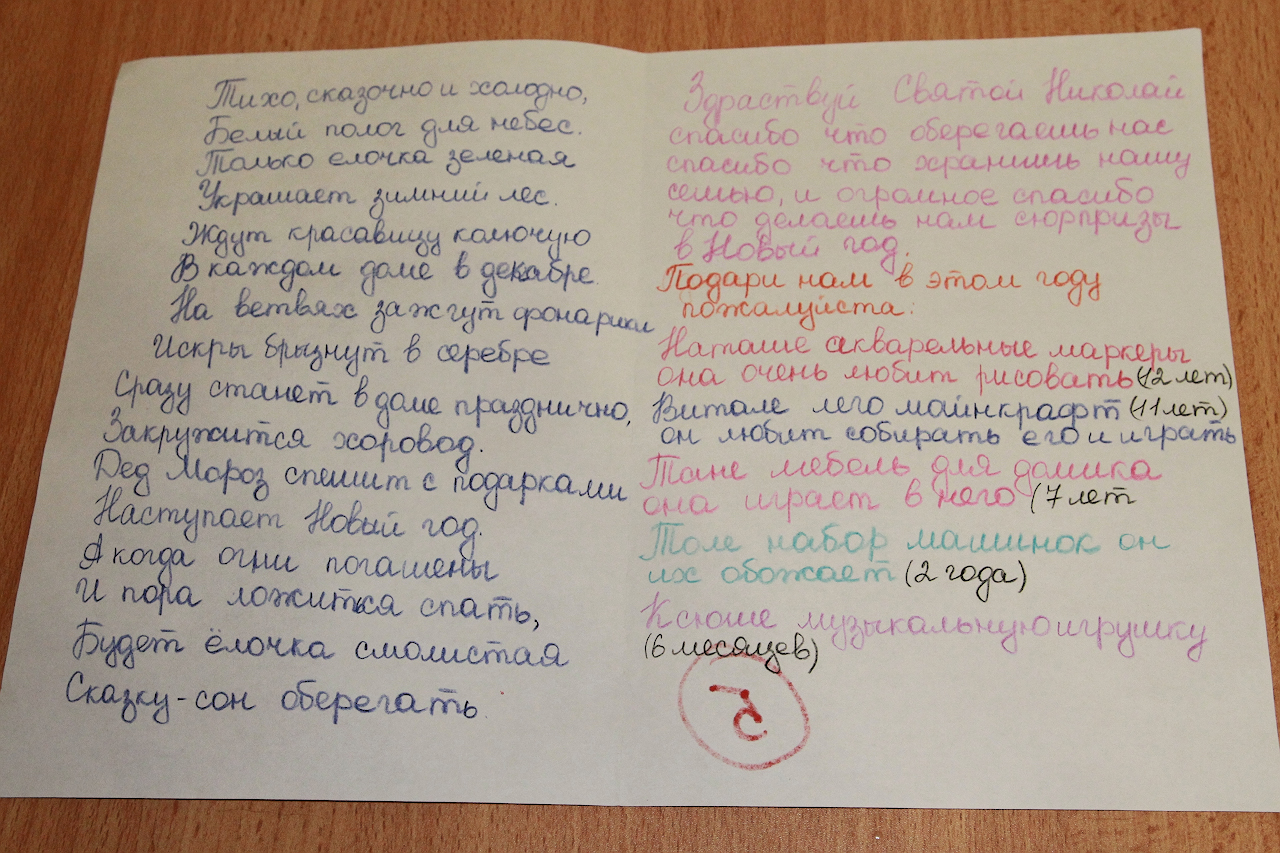 Тихо, сказочно и холодно,
Белый полог для небес.
Только елочка зеленая
Украшает зимний лес.
Ждут красавицу колючую
В каждом доме в декабре.
На ветвях зажгут фонарики
Искры брызнут в серебре
Сразу станет в доме празднично,
Закружится хоровод.
Дед Мороз спешит с подарками
Наступает Новый год.
А когда огни погашены
И пора ложиться спать,
Будет ёлочка смолистая
Сказку-сон оберегать.
Здраствуй Святой Николай
спасибо что оберегаешь нас
спасибо что хранишь нашу
семью, и огромное спасибо
что делаешь нам сюрпризы
в Новый год.
Подари нам в этом году
пожалуйста:
Наташе акварельные маркеры
она очень любит рисовать (12 лет)
Витале лего майнкрафт (11 лет)
он любит собирать его и играть
Тане мебель для домика
она играет в него (7 лет
Толе набор машинок он
их обожает (2 года)
Ксюше музыкальную игрушку
(6 месяцев)